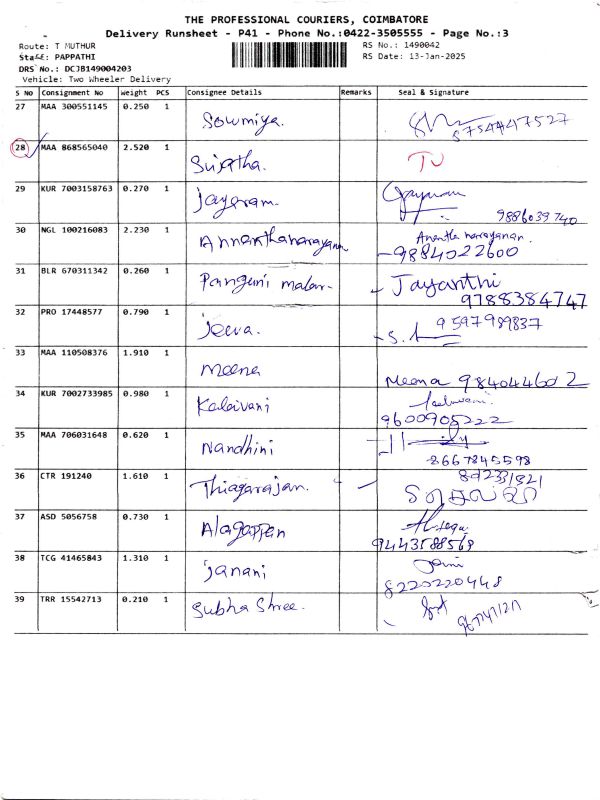 THE PROFESSIONAL COURIERS, COIMBATORE
Delivery Runsheet - P41 - Phone No.:0422-3505555 - Page No.:3
Route: T MUTHUR RS No.: 1490042
Staff: PAPPATHI RS Date: 13-Jan-2025
DRS No.: DCJB149004203
Vehicle: Two Wheeler Delivery
S NO Consignment No Weight PCS Consignee Details Remarks Seal & Signature
27 MAA 300551145 0.250 1 Sowmiya. 8754447527
28 MAA 868565040 2.520 1 Sujatha. TU
29 KUR 7003158763 0.270 1 Jayaram. Jayaram 9886039740
30 NGL 100216083 2.230 1 Annanthanarayanan Anantha narayanan.
9884022600
31 BLR 670311342 0.260 1 Panguni malar. Jayanthi
9788384747
32 PRO 17448577 0.790 1 Jeeva. 9597989837
33 MAA 110508376 1.910 1 Meena Meena 984044602
34 KUR 7002733985 0.980 1 Kalaivani
9600905222
35 MAA 706031648 0.620 1 Nandhini
8667845598
36 CTR 191240 1.610 1 Thiagarajan.
37 ASD 5056758 0.730 1 Alagappan
9443588569
38 TCG 41465843 1.310 1 Janani Jani
8220220448
39 TRR 15542713 0.210 1 Subha Shree.